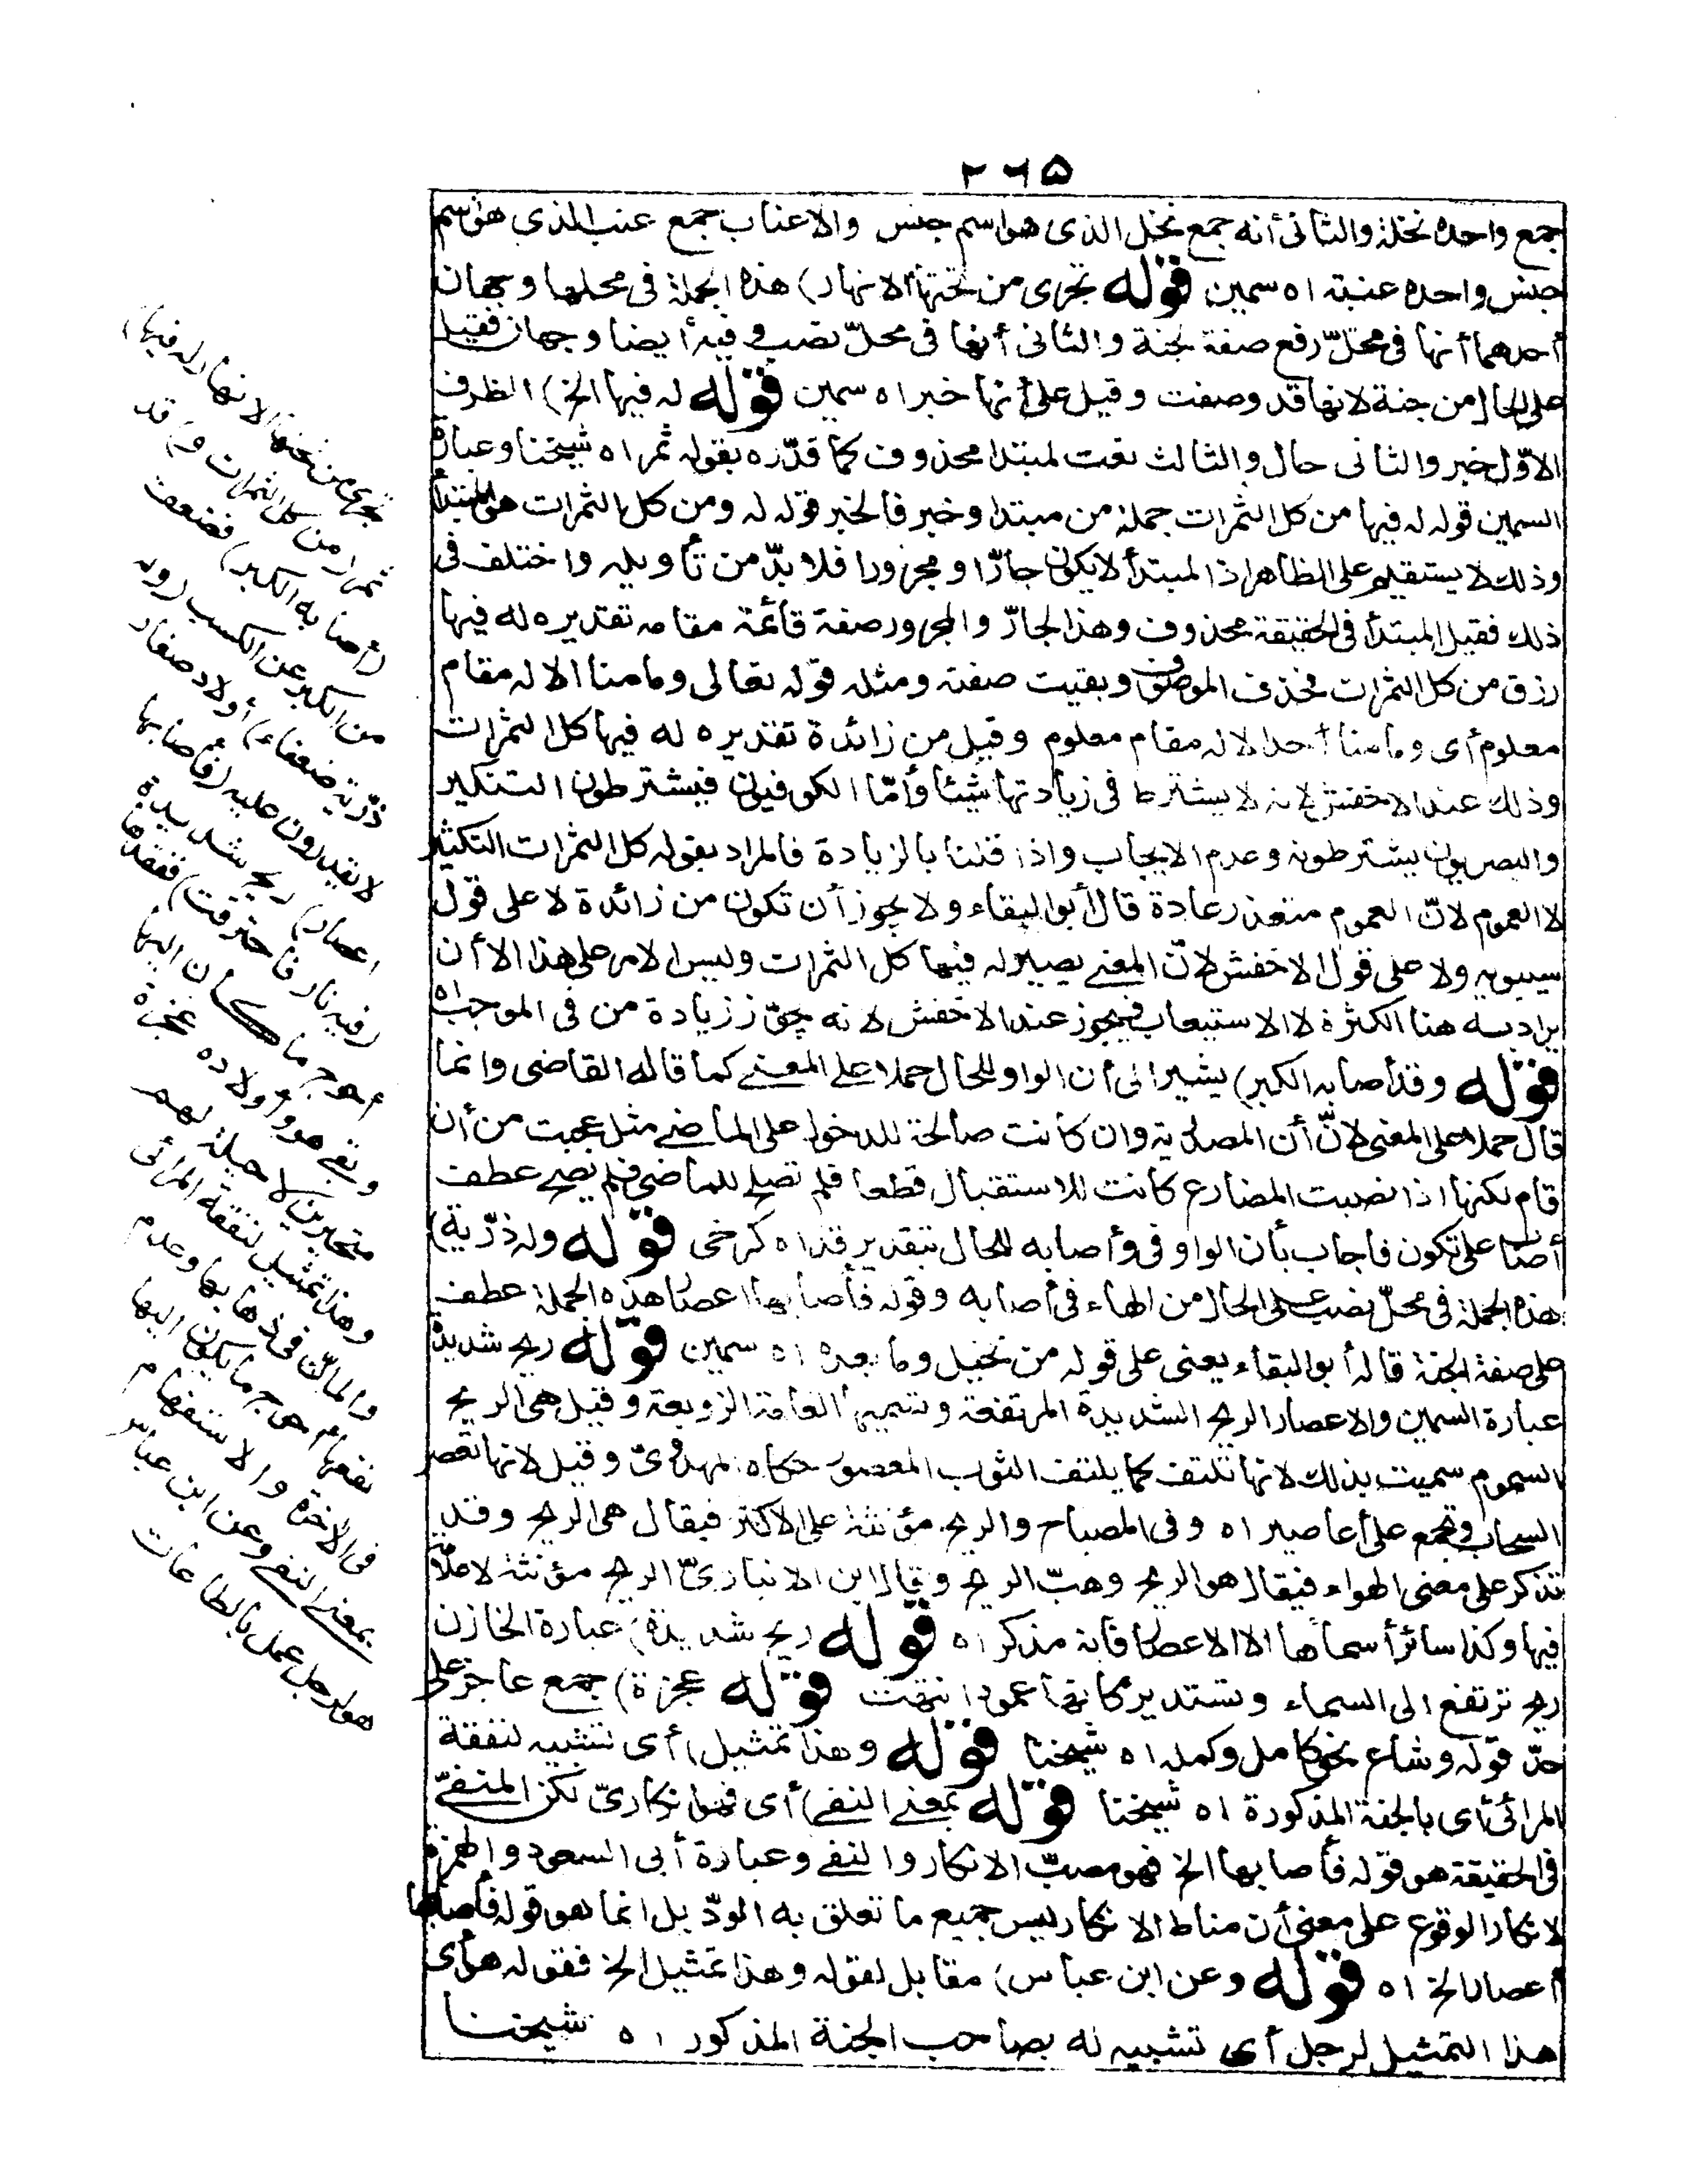 ٢٦٥
جمع واحده نخلة والثانى أنه جمع نخل الذى هو اسم جنس والاعناب جمع عنب الذى هو اسم
جنس واحده عنبة اه سمين قوله تجرى من تحتها الانهار) هذه الجملة فى محلها وجهان
أحدهما أنها فى محلّ رفع صفة لجنة والثانى أنها فى محلّ نصب وفيه أيضا وجهان فقيل
على الحال من جنة لانها قد وصفت وقيل على أنها خبر اه سمين قوله له فيها الخ) الظرف
الاوّل خبر والثانى حال والثالث نعت لمبتدا محذوف كما قدّره بقوله ثمر اه شيخنا وعبارة
السمين قوله له فيها من كل الثمرات جملة من مبتدا وخبر فالخبر قوله له ومن كل الثمرات هو المبتدأ
وذلك لا يستقيم على الظاهر اذ المبتدأ لا يكون جارّا ومجرورا فلا بدّ من تأويله واختلف فى
ذلك فقيل المبتدأ فى الحقيقة محذوف وهذا الجارّ والمجرور صفة قائمة مقامه تقديره له فيها
رزق من كل الثمرات فحذف الموصوف وبقيت صفته ومثله قوله تعالى وما منا الا له مقام
معلوم أى وما منا أحد الا له مقام معلوم وقيل من زائدة تقديره له فيها كل الثمرات
وذلك عند الاخفش لانه لا يشترط فى زيادتها شيئا وأمّا الكوفيون فيشترطون التنكير
والبصريون يشترطونه وعدم الايجاب واذا قلنا بالزيادة فالمراد بقوله كل الثمرات التكثير
لا العموم لانّ العموم متعذر عادة قال أبو البقاء ولا يجوز أن تكون من زائدة لا على قول
سيبويه ولا على قول الاخفش لانّ المعنى يصير له فيها كل الثمرات وليس الامر على هذا الا أن
يراد به هنا الكثرة لا الاستيعاب فيجوز عند الاخفش لانه يجوّز زيادة من فى الموجب اه
قوله وقد أصابه الكبر) يشير الى أن الواو للحال حملا على المعنى كما قاله القاضى وانما
قال حملا على المعنى لانّ أن المصدرية وان كانت صالحة للدخول على الماضى مثل عجبت من أن
قام لكنها اذا نصبت المضارع كانت للاستقبال قطعا فلم تصلح للماضى فلم يصح عطف
أصاب على تكون فاجاب بأن الواو فى وأصابه للحال بتقدير قد اه كرخى قوله وله ذرّية)
هذه الجملة فى محلّ نصب على الحال من الهاء فى أصابه وقوله فأصابها اعصار هذه الجملة عطف
على صفة الجنة قاله أبو البقاء يعنى على قوله من نخيل وما بعده اه سمين قوله ريح شديدة
عبارة السمين والاعصار الريح الشديدة المرتفعة وتسميها العامة الزوبعة وقيل هى الريح
السموم سميت بذلك لانها تلتف كما يلتف الثوب المعصور حكاه المهدوىّ وقيل لانها تعصر
السحاب وتجمع على أعاصير اه وفى المصباح والريح مؤنثة على الاكثر فيقال هى الريح وقد
تذكر على معنى الهواء فيقال هو الريح وهبّ الريح وقال ابن الانبارىّ الريح مؤنثة لا علامة
فيها وكذا سائر أسمائها الا الاعصار فانه مذكر اه قوله ريح شديدة) عبارة الخازن
ريح ترتفع الى السماء وتستدير كانها عمود انتهت قوله عجزة) جمع عاجز على
حدّ قوله وشاع نحو كامل وكمله اه شيخنا قوله وهذا تمثيل) أى تشبيه لنفقة
المرائى أى بالجنة المذكورة اه شيخنا قوله بمعنى النفى) أى فهو انكارىّ لكن المنفىّ
فى الحقيقة هو قوله فأصابها الخ فهو مصبّ الانكار والنفى وعبارة أبى السعود والهمزة
لانكار الوقوع على معنى أن مناط الانكار ليس جميع ما تعلق به الودّ بل انما هو قوله فأصابها
اعصار الخ اه قوله وعن ابن عباس) مقابل لقوله وهذا تمثيل الخ فقوله هو أى
هذا التمثيل لرجل أى تشبيه له بصاحب الجنة المذكور اه شيخنا
تجرى من تحتها الانهار له فيها)
ثمر (من كل الثمرات و) قد
(أصابه الكبر) فضعف
من الكبر عن الكسب (وله
ذرّية ضعفاء) أولاد صغار
لا يقدرون عليه (فأصابها
اعصار) ريح شديدة
(فيه نار فاحترقت) ففقدها
أحوج ما كان اليها
وبقى هو وأولاده عجزة
متحيرين لا حيلة لهم
وهذا تمثيل لنفقة المرائى
والمانّ فى ذهابها وعدم
نفعها أحوج ما يكون اليها
فى الآخرة والاستفهام
بمعنى النفى وعن ابن عباس
هو لرجل عمل بالطاعات